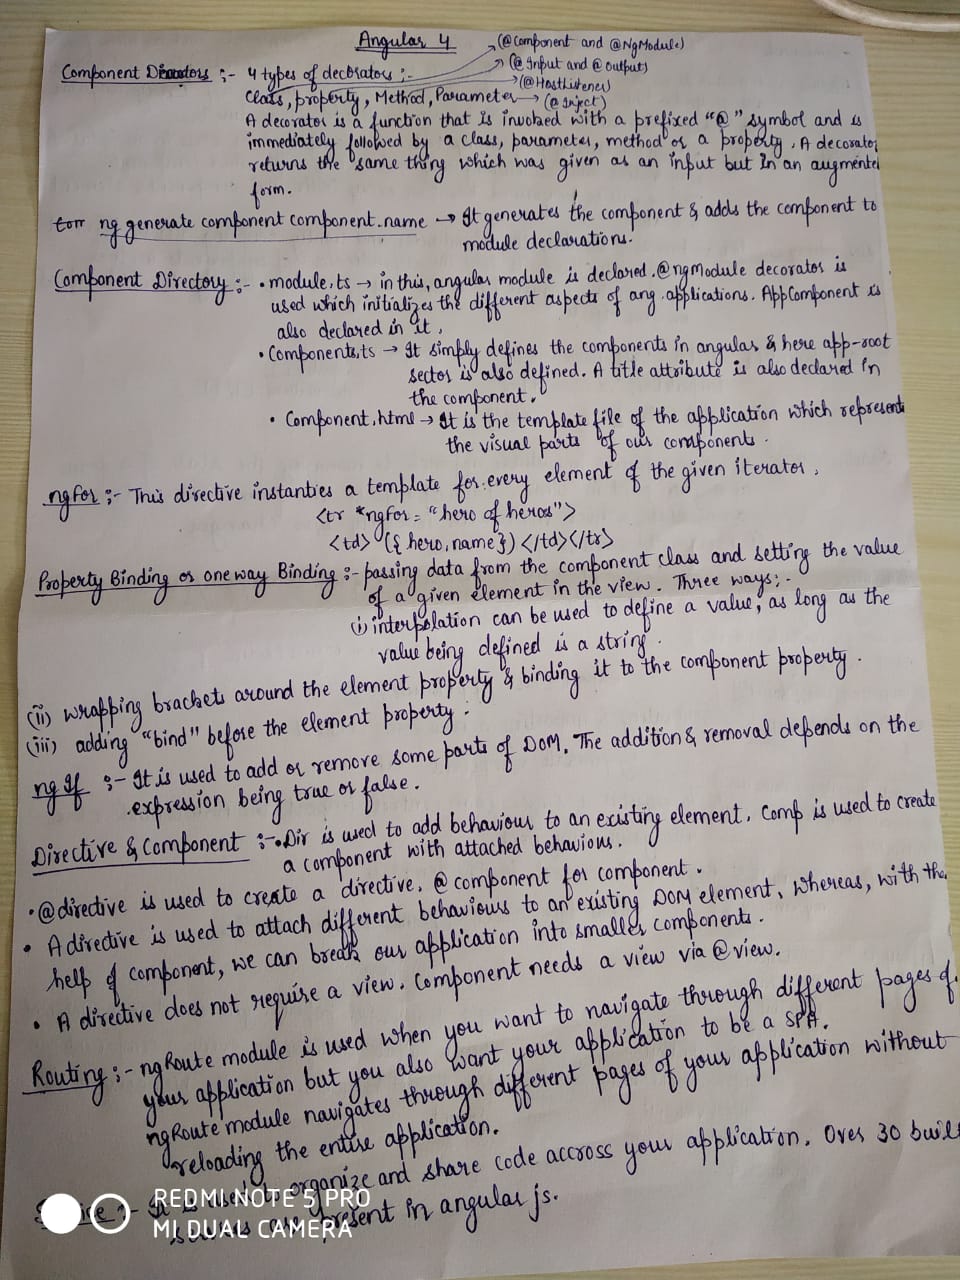 Angular 4
(@Component and @NgModule)
Component Decorators :- 4 types of decorators :-
(@Input and @output)
(@HostListener)
Class, property, Method, Parameter → (@Inject)
A decorator is a function that is invoked with a prefixed "@" symbol and is
immediately followed by a class, parameter, method or a property. A decorator
returns the same thing which was given as an input but in an augmented
form.
ng generate component component.name → It generates the component & adds the component to
module declarations.
Component Directory :- • module.ts → in this, angular module is declared. @ngModule decorator is
used which initializes the different aspects of ang. applications. AppComponent is
also declared in it.
• Components.ts → It simply defines the components in angular & here app-root
sector is also defined. A title attribute is also declared in
the component.
• Component.html → It is the template file of the application which represent
the visual parts of our components.
ngfor :- This directive instanties a template for every element of the given iterator.
<tr *ngFor = "hero of heros">
<td> ({hero.name}) </td></tr>
Property Binding or one way Binding :- passing data from the component class and setting the value
of a given element in the view. Three ways :-
(i) interpolation can be used to define a value, as long as the
value being defined is a string.
(ii) wrapping brackets around the element property & binding it to the component property.
(iii) adding "bind" before the element property.
ng If :- It is used to add or remove some parts of DOM. The addition & removal depends on the
expression being true or false.
Directive & Component :- • Dir is used to add behaviour to an existing element. Comp is used to create
a component with attached behaviour.
• @directive is used to create a directive. @component for component.
• A directive is used to attach different behaviours to an existing DOM element, whereas, with the
help of component, we can break our application into smaller components.
• A directive does not require a view. Component needs a view via @view.
Routing :- ngRoute module is used when you want to navigate through different pages of
your application but you also want your application to be a SPA.
ngRoute module navigates through different pages of your application without
reloading the entire application.
:- It is used to organize and share code accross your application. Over 30 buil
present in angular js.
REDMI NOTE 5 PRO
MI DUAL CAMERA